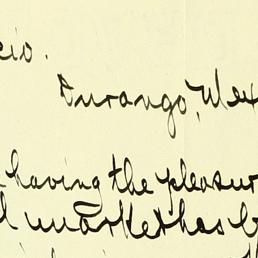 cio.
Durango, Mex
having the pleasur
market has b